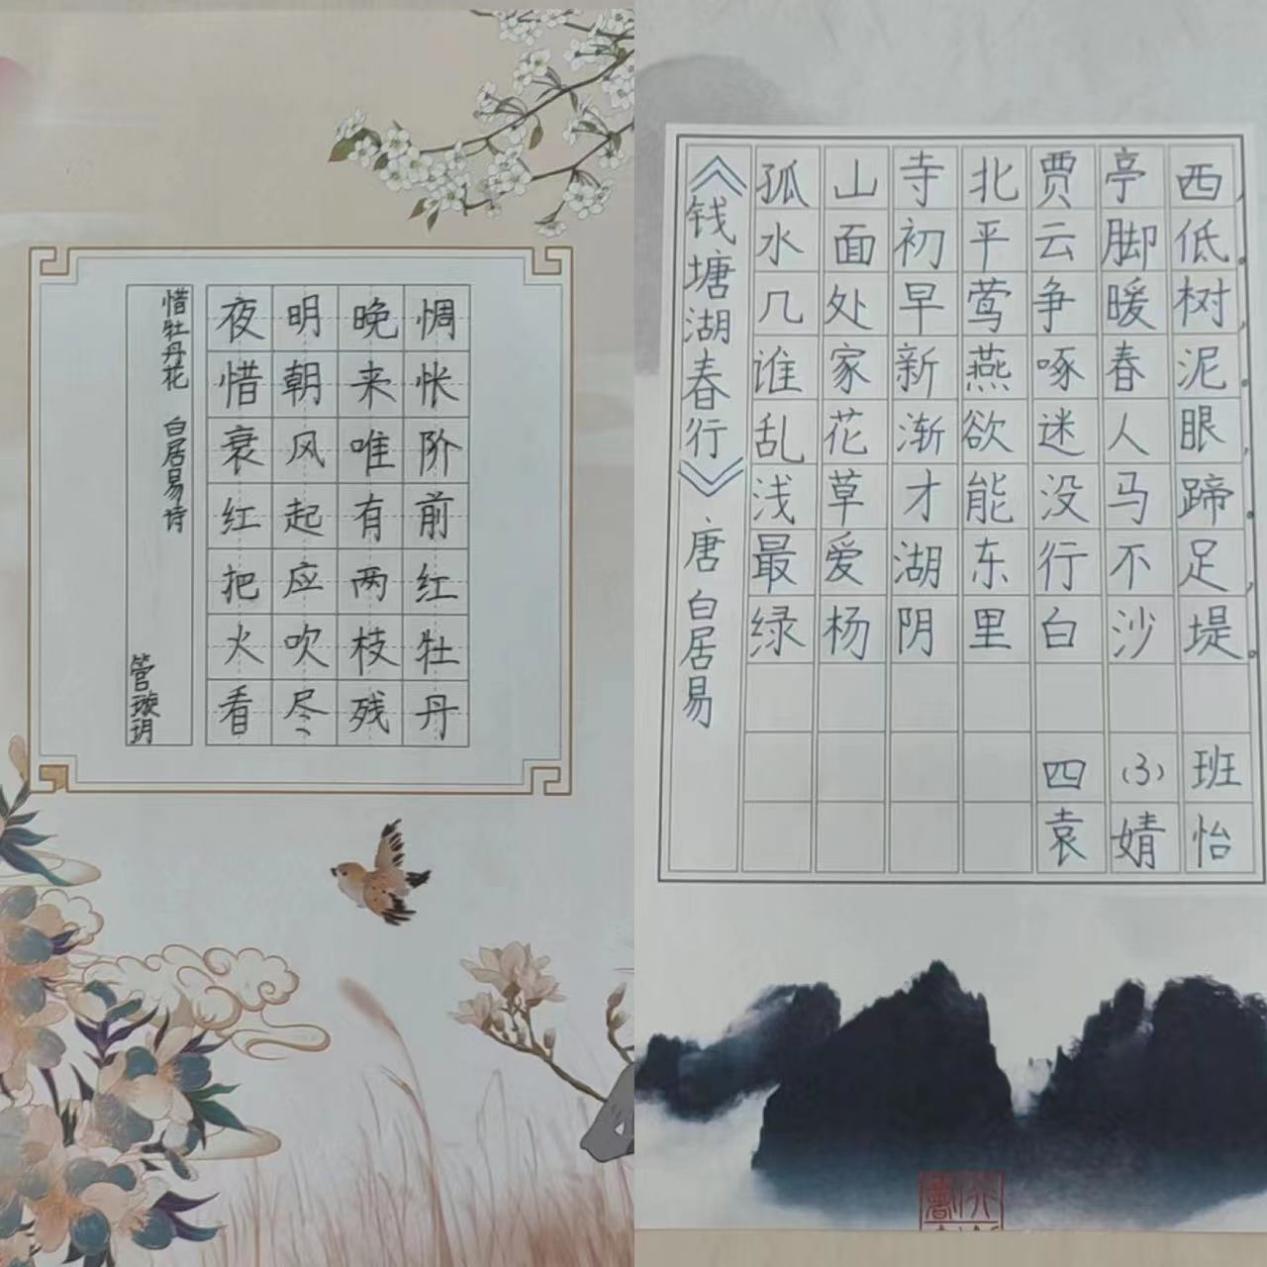 惆怅阶前红牡丹
晚来唯有两枝残
明朝风起应吹尽
夜惜衰红把火看
惜牡丹花 白居易诗
管璇玥
《钱塘湖春行》 唐 白居易
孤山寺北贾亭西,
水面初平云脚低。
几处早莺争暖树,
谁家新燕啄春泥。
乱花渐欲迷人眼,
浅草才能没马蹄。
最爱湖东行不足,
绿杨阴里白沙堤。
四(3)班
袁婧怡